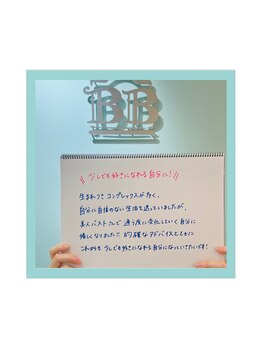 BB
少しでも好きになれる自分に!
生まれつきコンプレックスが多く、
自分に自信のない生活を送っていましたが、
美人バストさんで通う度に変化していく自分に
嬉しくなりました!! 的確なアドバイスとともに
これからも少しでも好きになれる自分になっていきたいです!